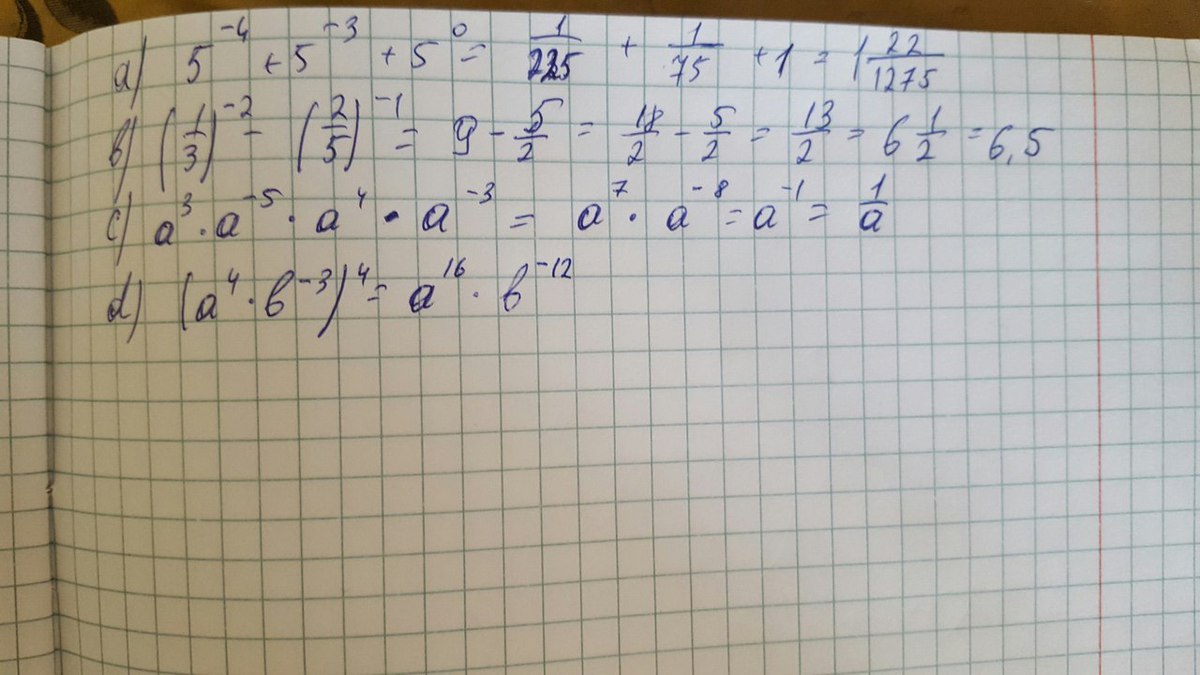 a) 5⁻⁴ + 5⁻³ + 5⁰ = 1/225 + 1/75 + 1 = 1 22/1275
b) (1/3)⁻² - (2/5)⁻¹ = 9 - 5/2 = 18/2 - 5/2 = 13/2 = 6 1/2 = 6,5
c) a³ · a⁻⁵ · a⁴ · a⁻³ = a⁷ · a⁻⁸ = a⁻¹ = 1/a
d) (a⁴ · b⁻³)⁴ = a¹⁶ · b⁻¹²